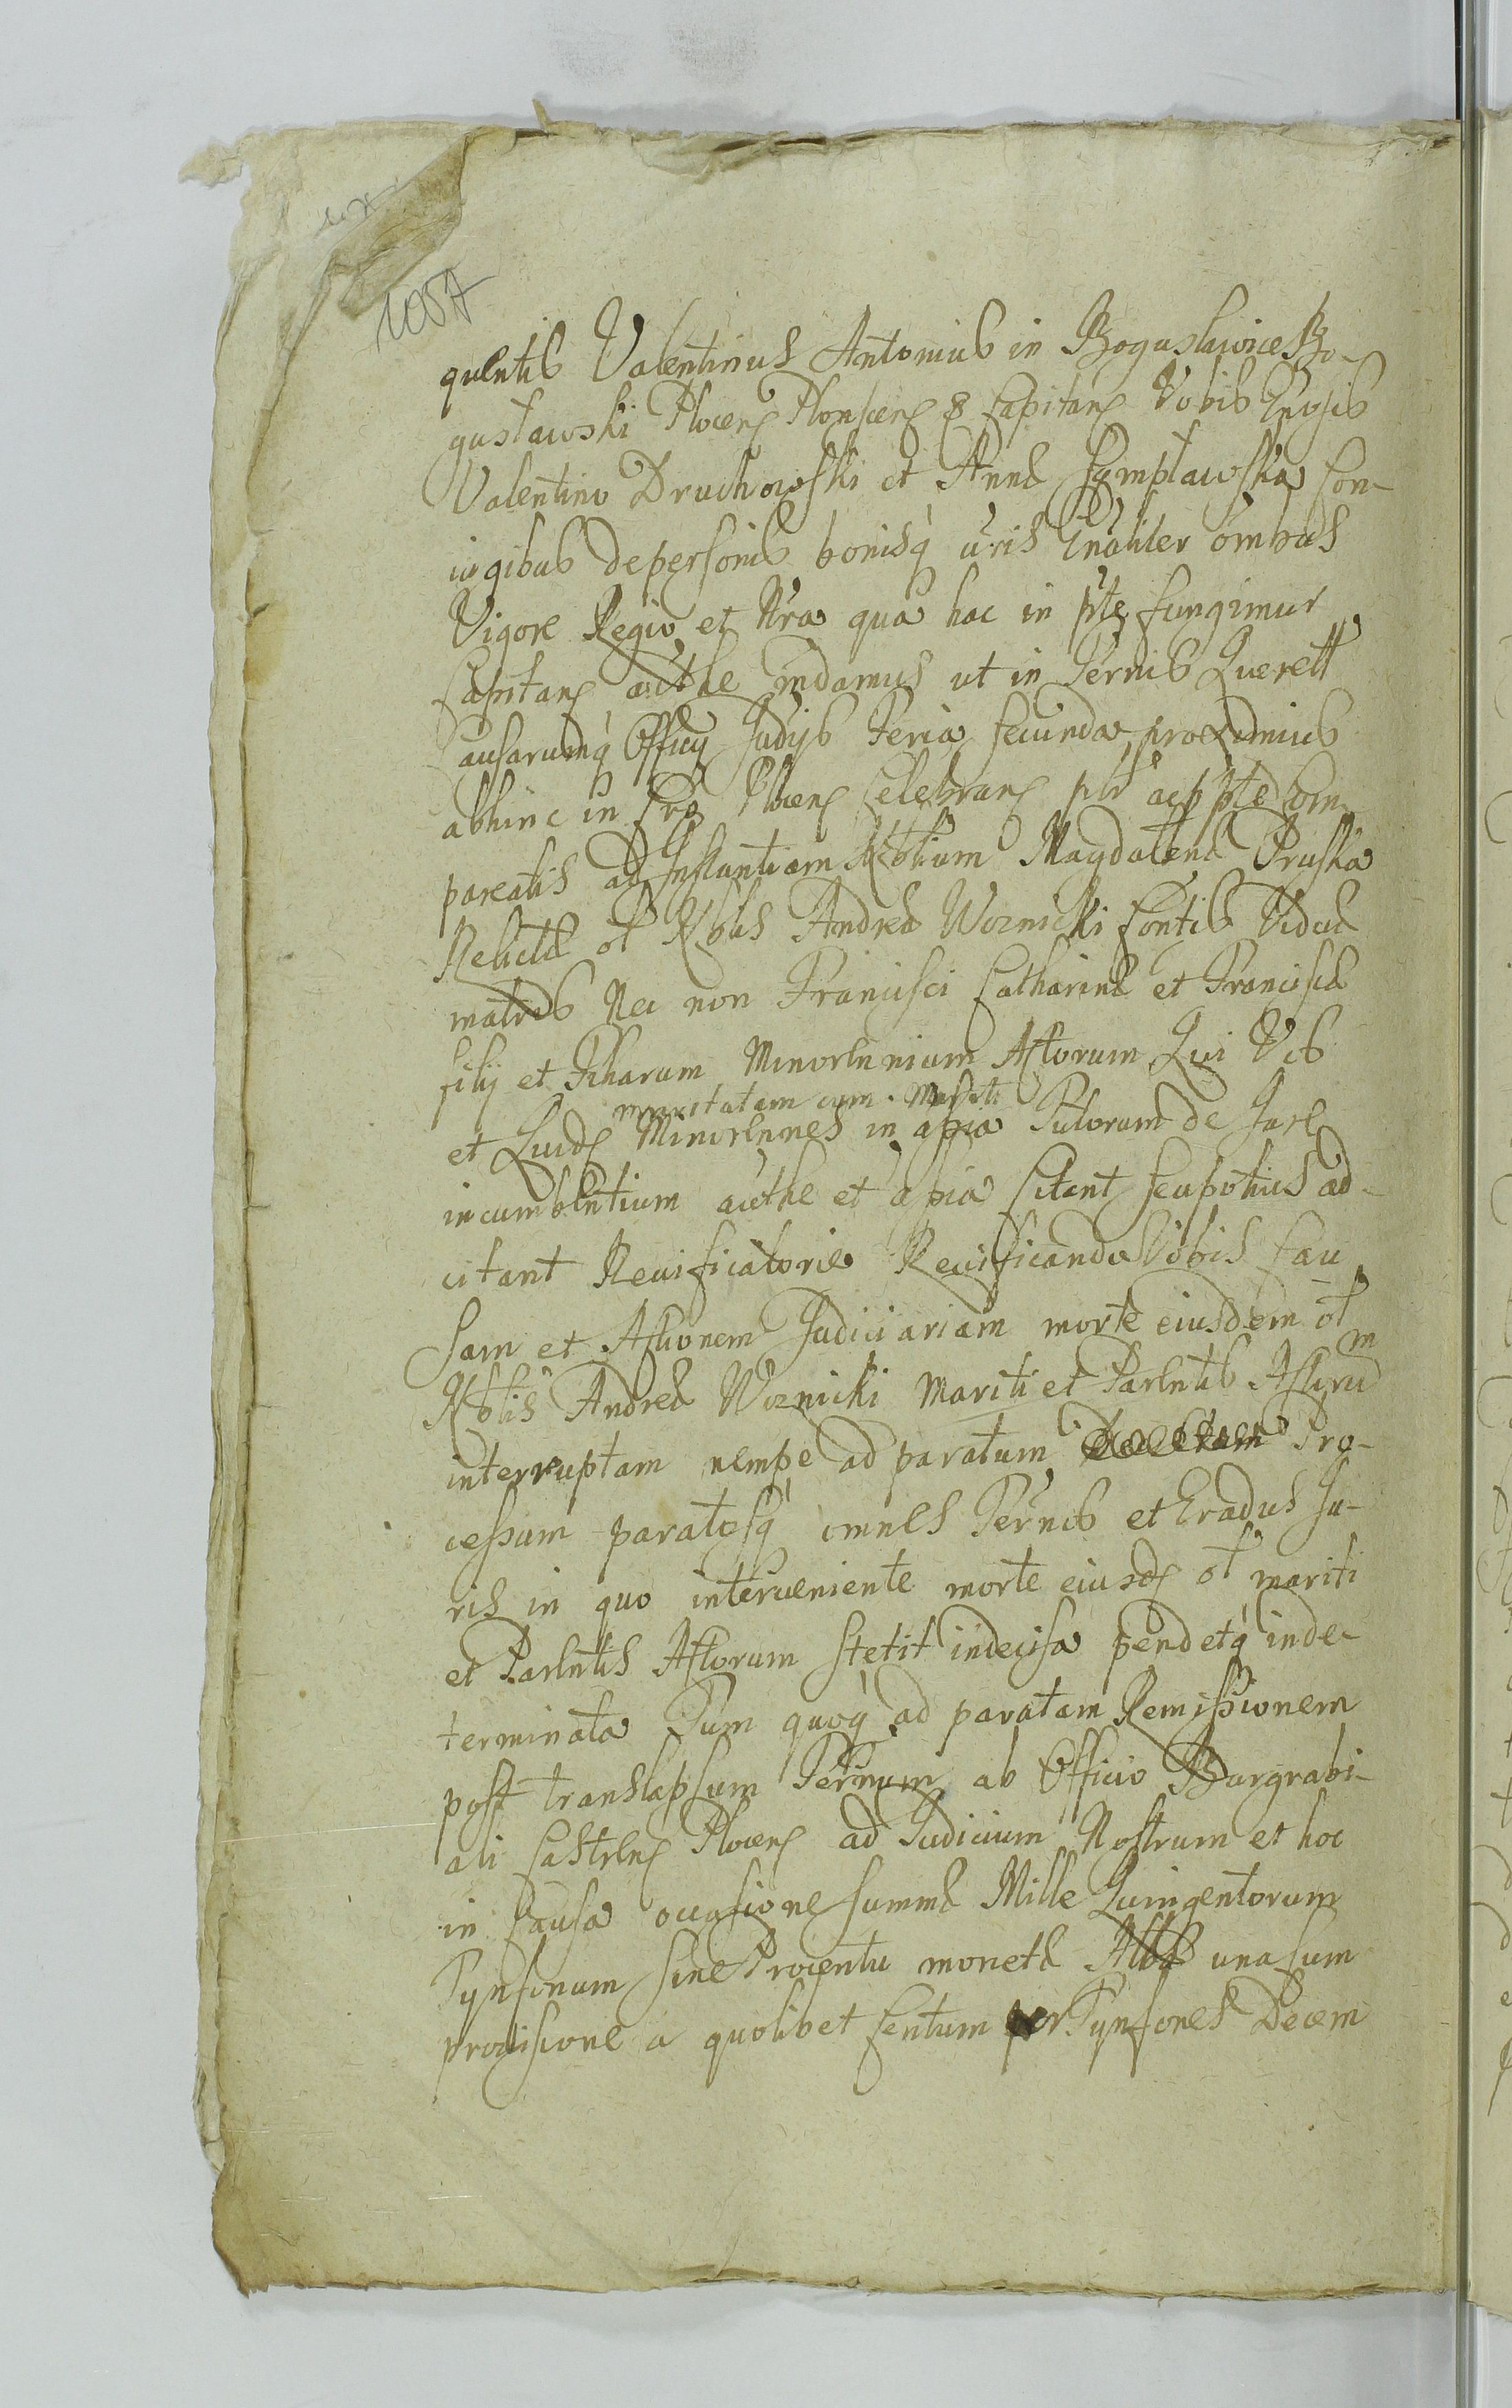 1057
quentis Valentinus Antonius in Bogusławice Bo-
gusławski Plocen Plonscen & Capitan Vobis Gnosis
Valentino Druchowski et Annæ Conⁱ-
iugibus de personis bonisq vris Gnaliter ombus
Vigore Regia et Nra qua hac in pte fungimur
Capitan authe mdamus ut in Termis Querell
Causarumq Officy Judijs Feria secunda proximius
abhinc in Cro Plocen Celebran plr ac ppte Com
pareatis ad Instantiam Nobilium Magdalenæ Pruska
Relictæ ol Nobilis Andreæ Woznicki Contis Viduæ
matris Nec non Francisci Catharinæ et Franciscæ
filij et Filiarum Minorennium Actorum Qui Vos
maritatam cum
et Quidē Minorennes in aſſia Tutorum de Jure
incumbentium authe et aſſia Citant seu potius ad-
citant Reuificatorie Reuificando Vobis Cau
sam et Actionem Judiciariam morte eiusdem ol
Nobilis Andreæ Woznicki Mariti et Parentis Actorum
interruptam nempe ad paratum Pro-
cessum paratosq omnes Termos et Gradus Ju-
ris in quo interueniente morte eiusdē ol mariti
et Parentis Actorum stetit indecisa pendetq inde-
terminata Tum quoq ad paratam Remissionem
post translapsum Termum ab Officio Burgrabi-
ali Castren Plocen ad Judicium Nostrum et hoc
in Causa occasione summæ Mille Quingentorum
Tynfonum siue Procentu monetæ Albæ una cum
prouisione a quolibet Centum per Tynfones Decem